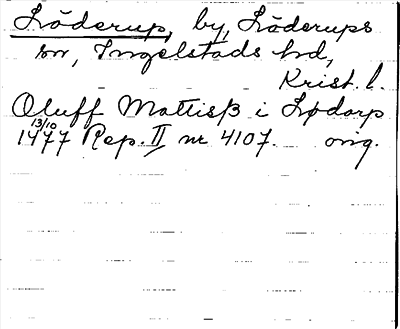 Löderup, by, Löderups
sn, Ingelstads hd,
Krist. l.
Oluff Mattisß i Lødorp
13/10
1477 Rep. II nr 4107. orig.